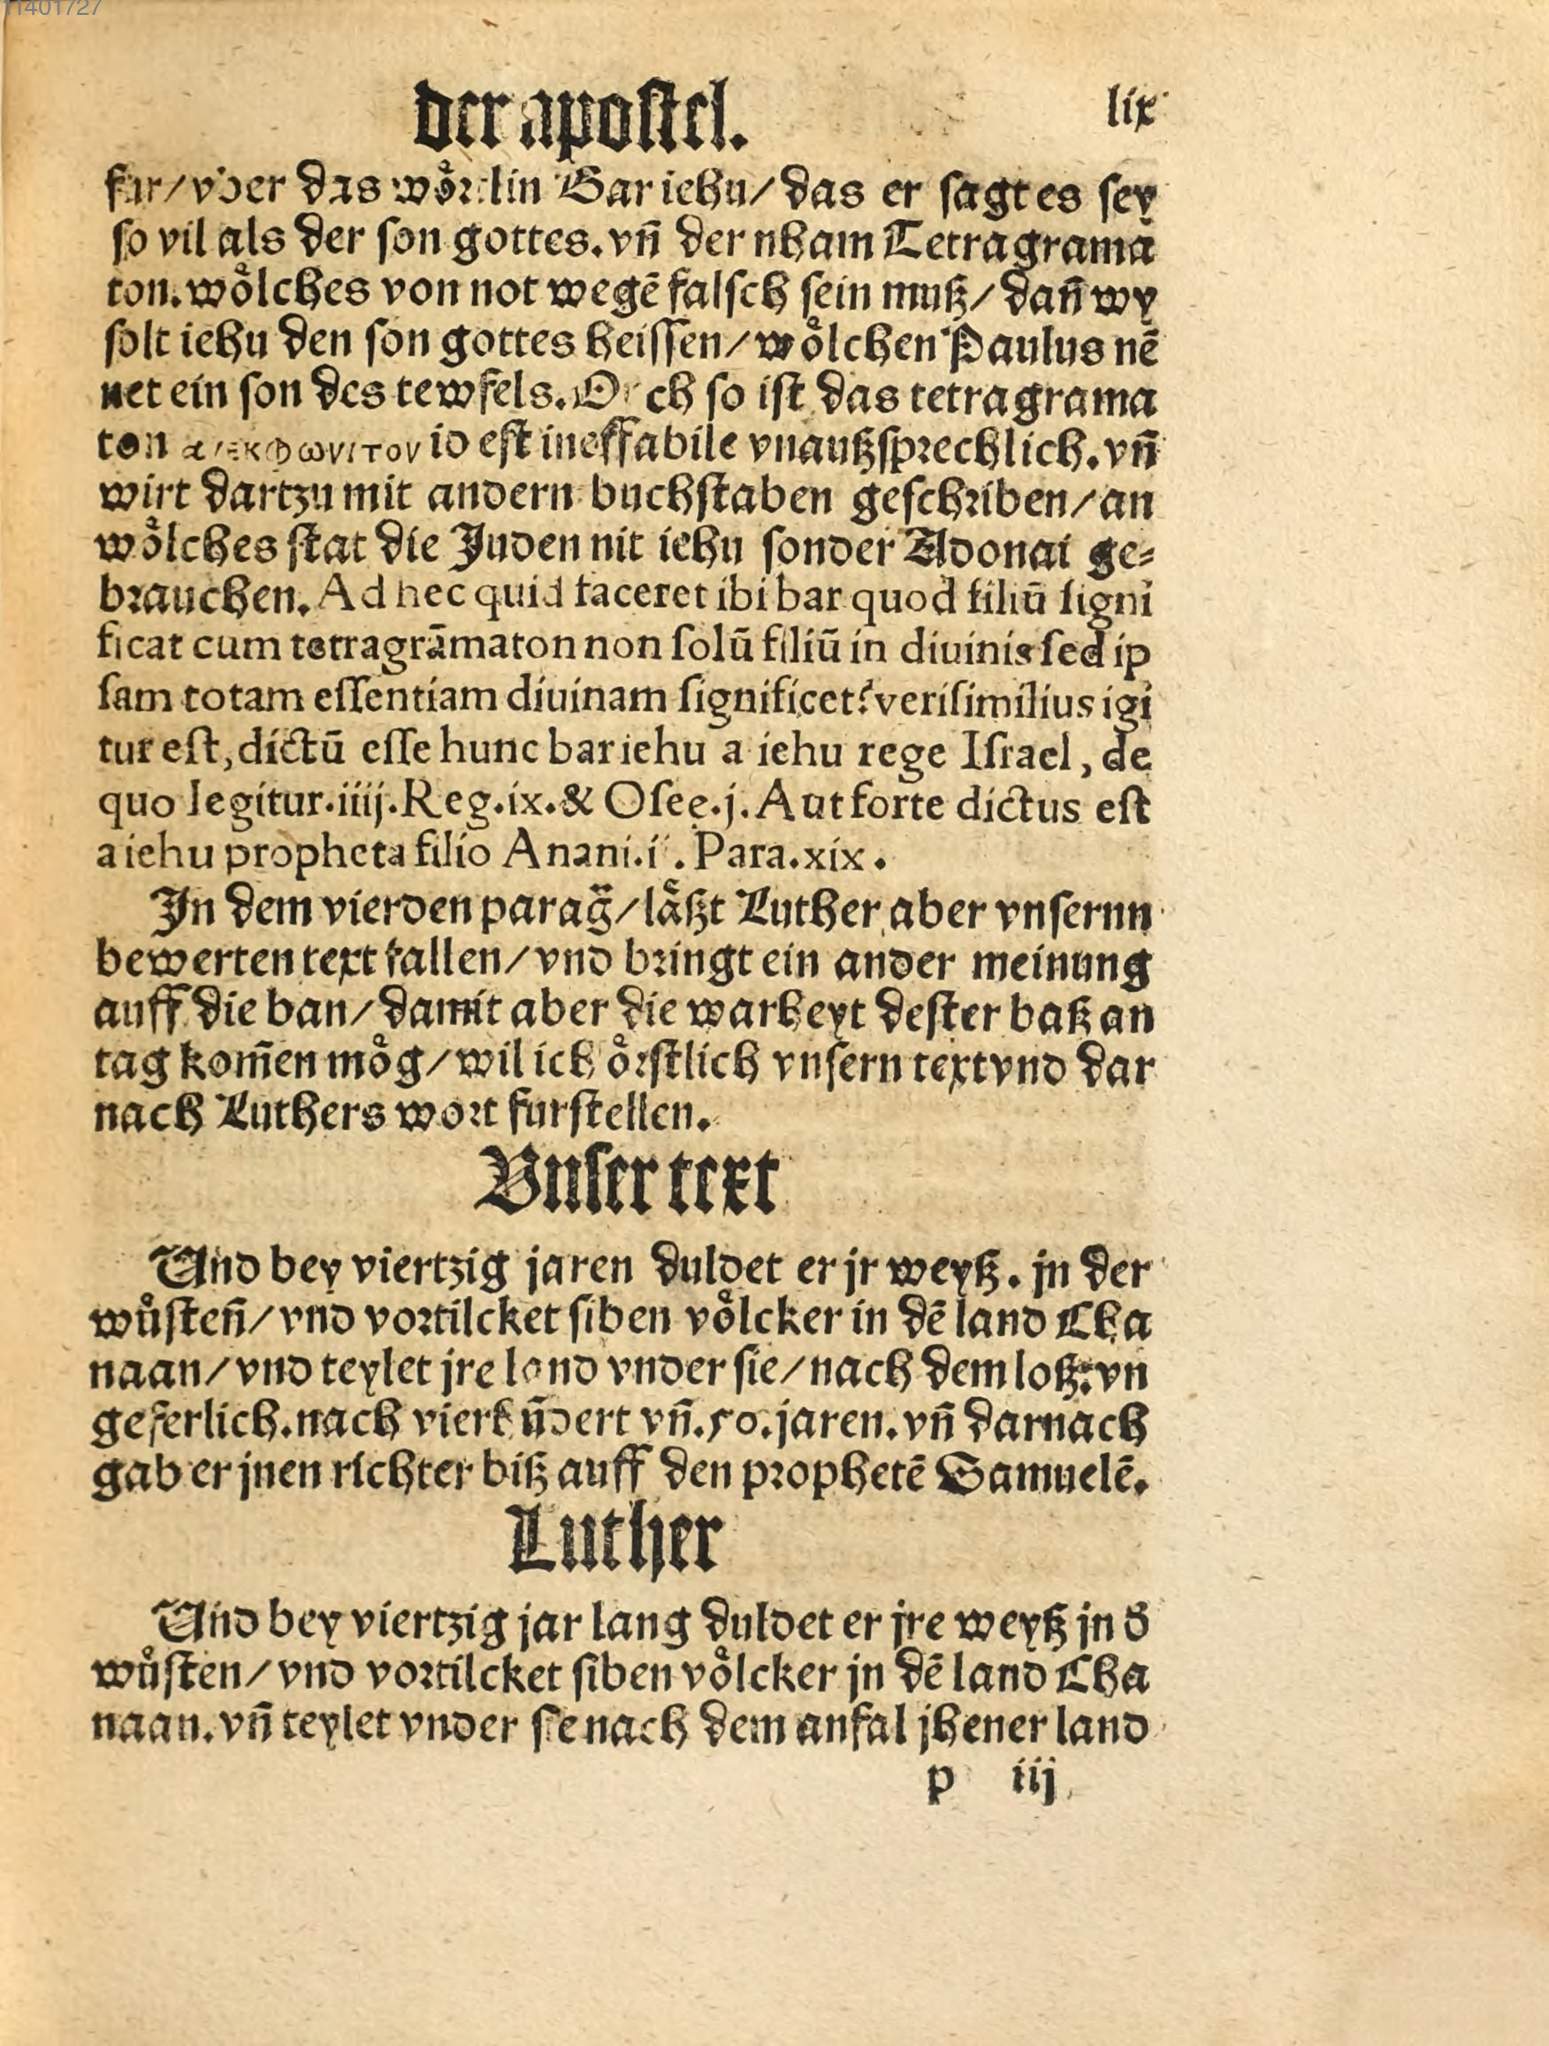 11401727
der apostel. lix
far/vber das wöꝛtlin Bar iehu/das er sagt es sey
so vil als der son gottes.vñ der nham Tetragrama
ton.wölches von not wegē falsch sein muß/dañ wy
solt iehu den son gottes heissen/wölchen Paulus nē
net ein son des tewfels. Och so ist das tetragrama
ton id est ineffabile vnaußspꝛechlich.vñ
wirt dartzu mit andern buchstaben geschꝛiben/an
wölches stat die Juden nit iehu sonder Adonai ge⸗
bꝛauchen. Ad hec quid faceret ibi bar quod filiū signi
ficat cum tetragrāmaton non solū filiū in diuinis sed ip
sam totam essentiam diuinam significet? verisimilius igi
tur est, dictū esse hunc bariehu a iehu rege Israel, de
quo legitur.iiij.Reg.ix.& Osee.j. Aut forte dictus est
a iehu propheta filio Anani.ii. Para.xix.
In dem vierden parag̃/låßt Luther aber vnsernn
bewerten text fallen/vnd bꝛingt ein ander meinung
auff die ban/damit aber die warheyt dester baß an
tag kom̃en mög/wil ich öꝛstlich vnsern text vnd dar
nach Luthers woꝛt furstellen.
Vnser text
Und bey viertzig jaren duldet er jr weyß. jn der
wůsteñ/vnd voꝛtilcket siben völcker in dē land Cha
naan/vnd teylet jre land vnder sie/nach dem loß:vn
geferlich.nach vierhūdert vñ.50.jaren.vñ darnach
gab er jnen richter biß auff den pꝛophetē Samuelē.
Luther
Und bey viertzig jar lang duldet er jre weyß jn đ
wůsten/vnd voꝛtilcket siben völcker jn dē land Cha
naan.vñ teylet vnder sie nach dem anfal jhener land
p iij